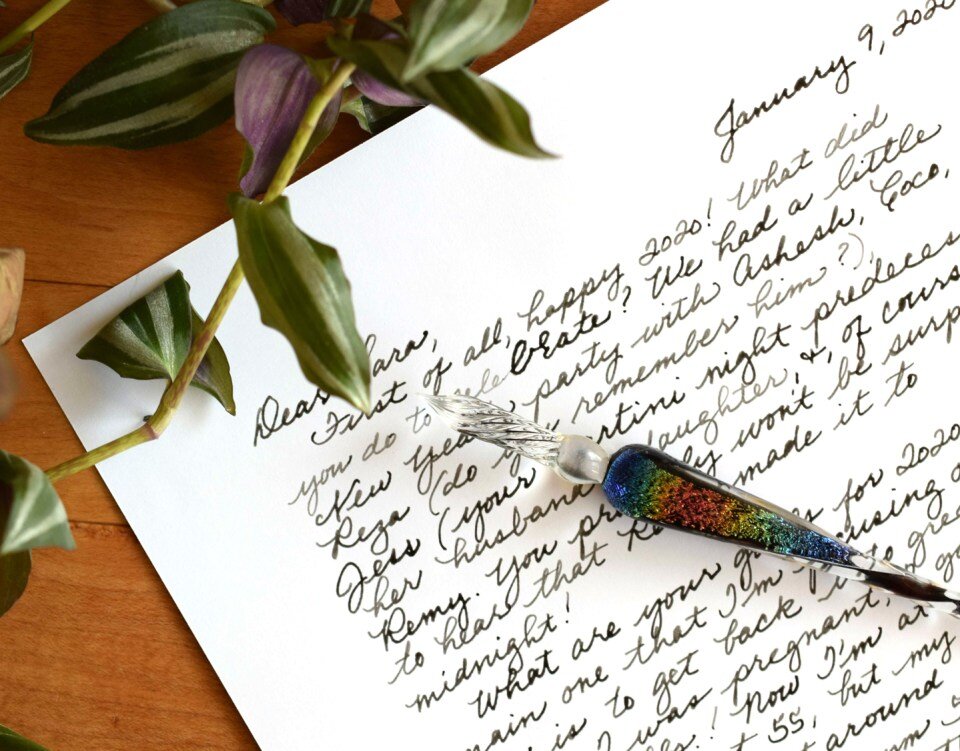 January 9, 2020
Dear ara,
First of all, happy 2020! What did
you do to celebrate? We had a little
New Year party with Ashesh, Coco,
Reza (do y remember him?),
Jess (your artini night predeces
her husband aughter, &, of cours
Remy. You pr ly won't be surp
to hear that Re made it to
midnight!
What are your g s for 2020
ain one that I'm f using
is to get back to gre
I was pregnant,
! Now I'm at
t 55, but my
around